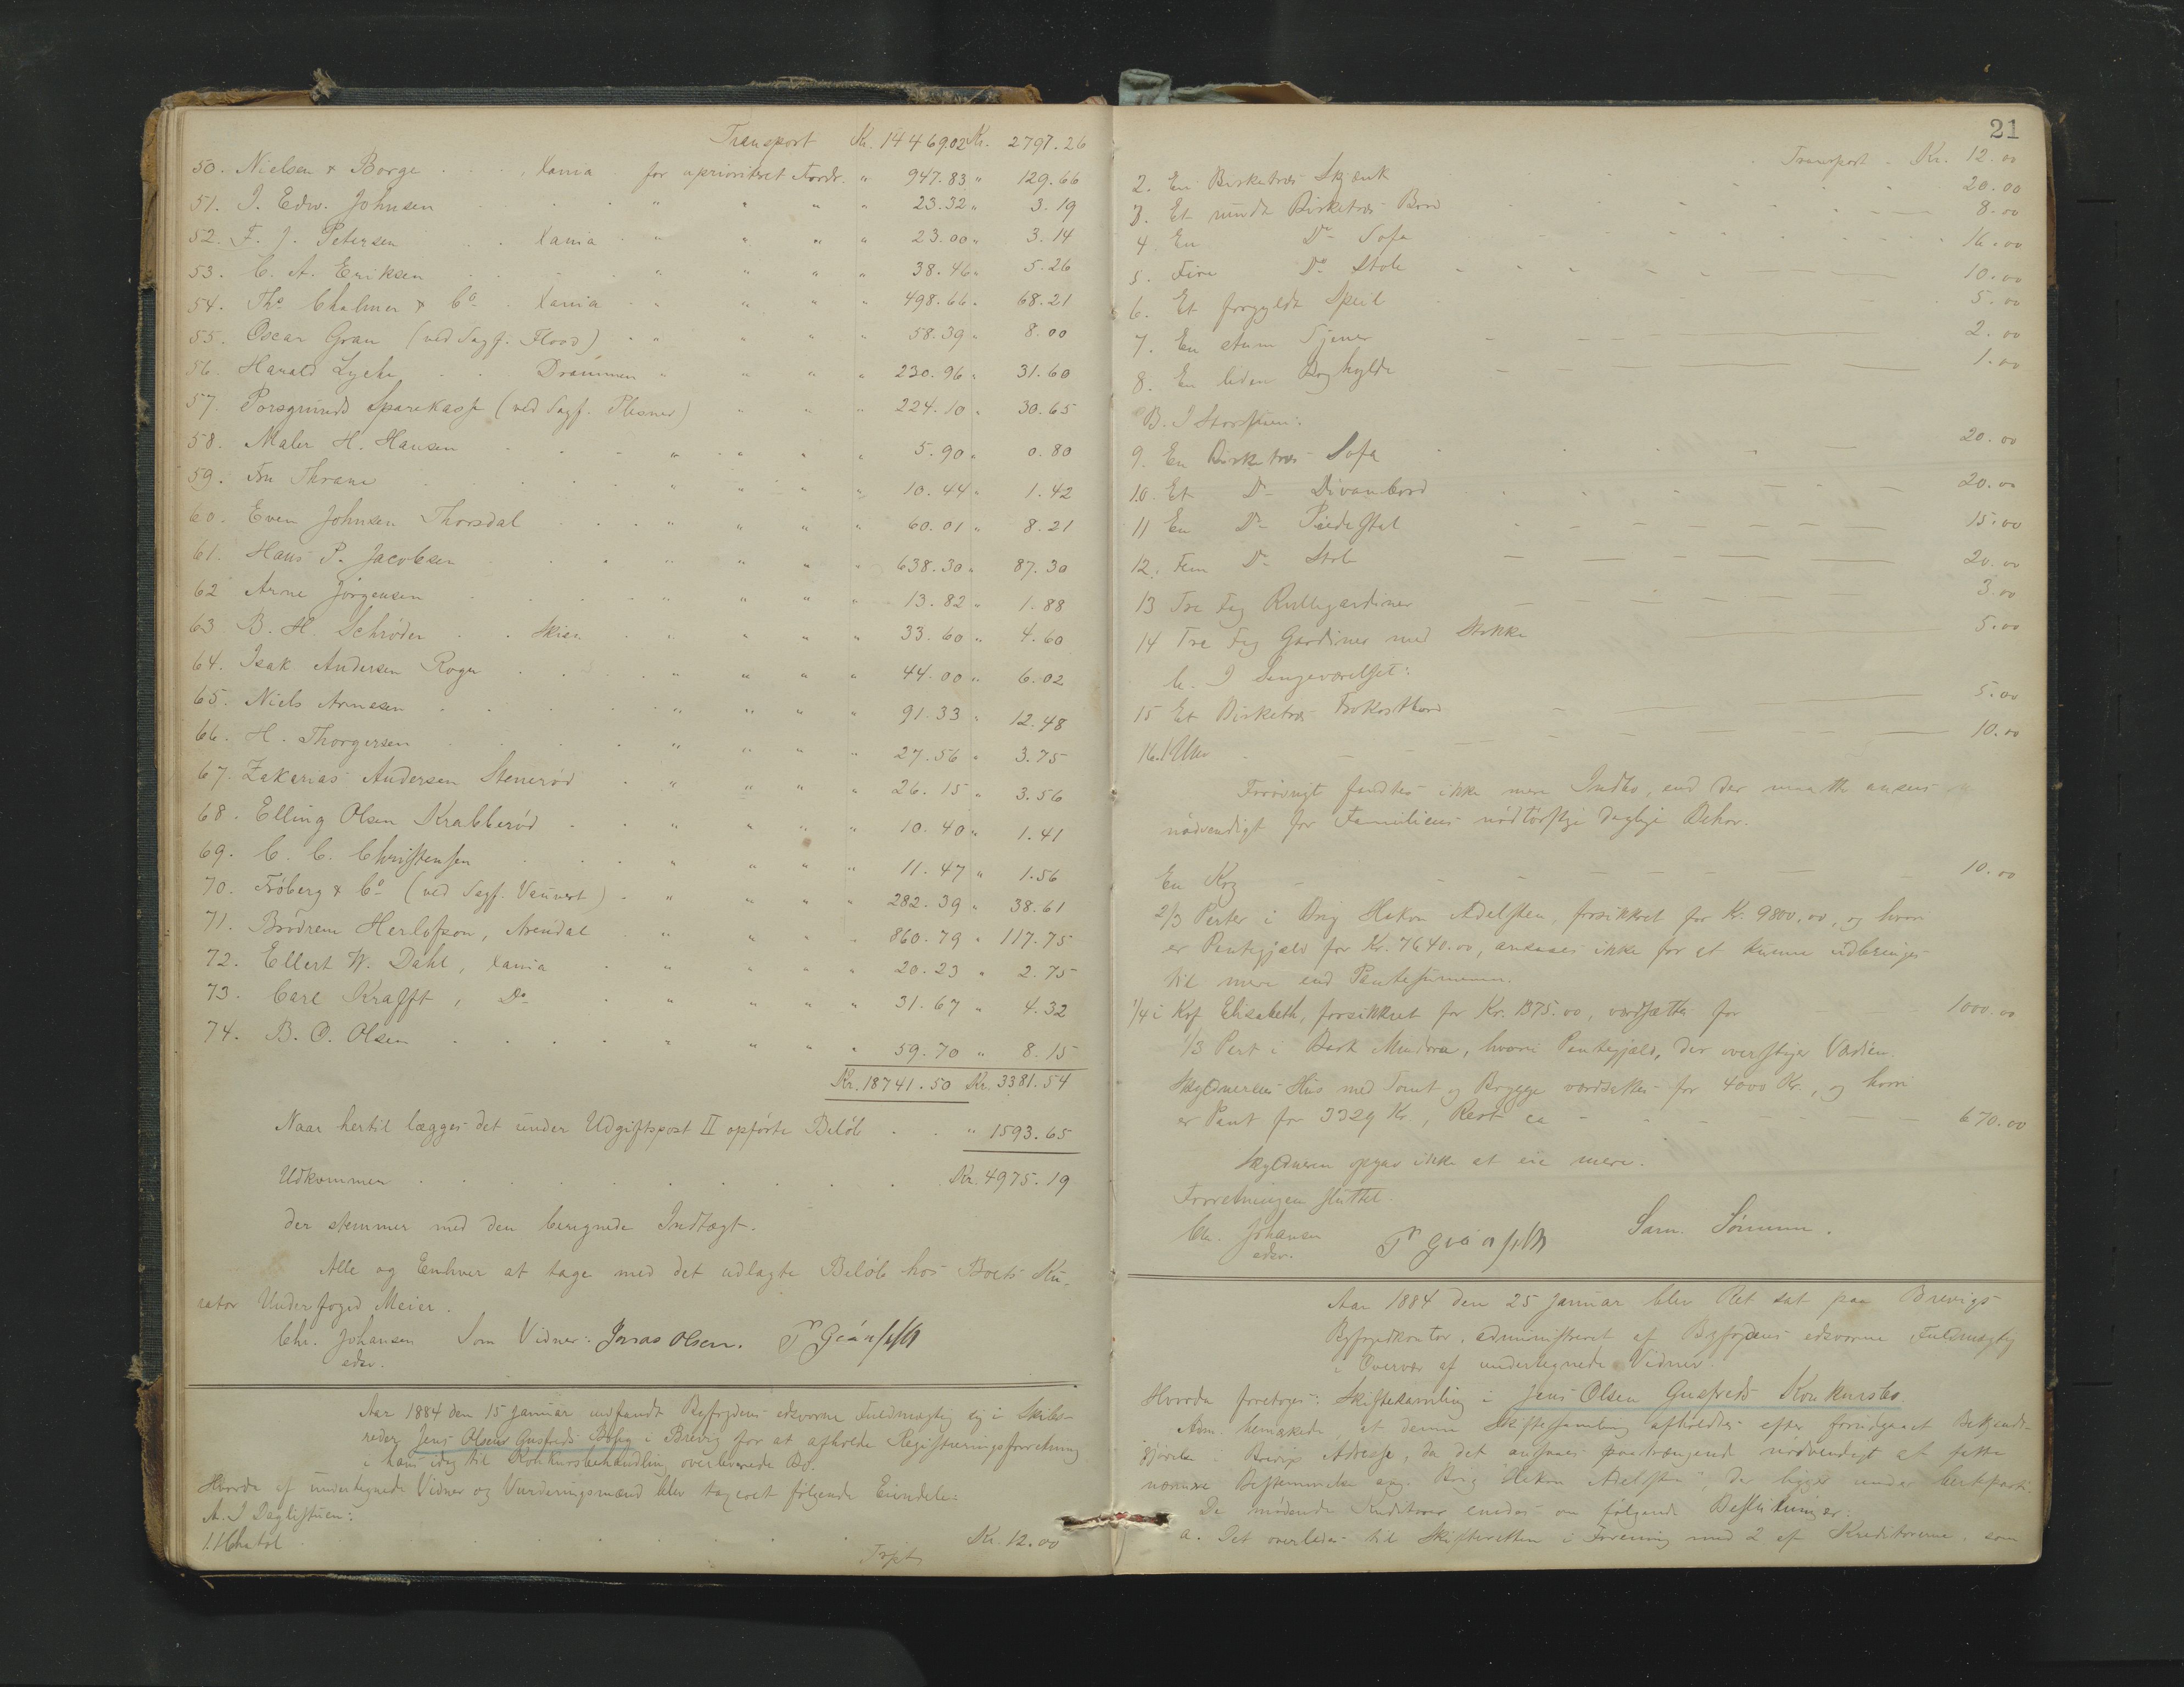 Transport Kr. 14469.02 Kr. 2797.26
50. Nielsen & Borge . . , Xania . for uprioriteret Fordr. " 947.83 " 129.66
51. I. Edw. Johnsen . . . . " " " " 23.32 " 3.19
52. F. J. Petersen . . Xania . " " " " 23.00 " 3.14
53. C. A. Eriksen . . . . " " " " 38.46 " 5.26
54. Ths. Chalmer & Co . Xania . " " " " 498.66 " 68.21
55. Oscar Gran (ved Sagf. Flood) . " " " " 58.39 " 8.00
56. Harald Lyche . . Drammen " " " " 230.96 " 31.60
57. Porsgrunds Sparekasse (ved Sagf. Plesner) " " " 224.10 " 30.65
58. Maler H. Hansen . . . " " " " 5.90 " 0.80
59. Fru Thrane . . . . " " " " 10.44 " 1.42
60. Even Johnsen Thorsdal . . . " " " " 60.01 " 8.21
61. Hans P. Jacobsen . . . " " " " 638.30 " 87.30
62 Arne Jörgensen . . . . " " " " 13.82 " 1.88
63 B. H. Schrøder . . Skien . " " " " 33.60 " 4.60
64. Isak Andersen Rogn . . . . " " " " 44.00 " 6.02
65. Niels Arnesen . . . . " " " " 91.33 " 12.48
66. H. Thorgersen . . . . " " " " 27.56 " 3.75
67. Zakarias Andersen Stenerød . " " " " 26.15 " 3.56
68. Elling Olsen Krabberød . . " " " " 10.40 " 1.41
69. C. C. Christensen . . . " " " " 11.47 " 1.56
70. Fröberg & Co (ved Sagf. Vauvert) . " " " " 282.39 " 38.61
71. Brödrene Herlofson, Arendal . " " " " 860.79 " 117.75
72. Ellert W. Dahl, Xania . " " " " 20.23 " 2.75
73. Carl Krafft, Do . " " " " 31.67 " 4.32
74. B. O. Olsen . . . . " " " " 59.70 " 8.15
Kr. 18741.50 Kr. 3381.54
Naar hertil lægges det under Udgiftspost II opførte Beløb . . " 1593.65
Udkommer . . . . . . . . . Kr. 4975.19
der stemmer med den beregnede Indtægt.
Alle og Enhver at tage med det udlagte Beløb hos Boets Ku-
rator Underfoged Meier.
Chr. Johansen Som Vidner: Jonas Olsen.
edsv.
Aar 1884 den 15 Januar indfandt Byfogdens edsvorne Fuldmægtig sig i Skibs-
reder Jens Olsens Gusfreds Bolig i Brevig for at afholde Registreringsforretning
i hans idag til Konkursbehandling overleverede Bo.
Hvorda af undertegnede Vidner og Vurderingsmænd blev taxeret følgende Eiendele:
A. I Dagligstuen:
1. 1 Chatol . . . . . . . . Kr. 12.00
Trspt
21
Transport . Kr. 12.00
2. En Birketræs Skjænk 20.00
3. Et rundt Birketræs Bord 8.00
4. En Do Sofa 16.00
5. Fire Do Stole 10.00
6. Et forgyldt Speil 5.00
7. En stum Tjener 2.00
8. En liden Boghylde 1.00
B. I Storstuen:
9. En Birketræs Sofa 20.00
10. Et Do Divanbord 20.00
11 En Do Piedestal 15.00
12. Fem Do Stole 20.00
13 Tre Fag Rullegardiner 3.00
14 Tre Fag Gardiner med Stokke 5.00
C. I Sengeværelset:
15 Et Birketræs Frokostbord 5.00
16. 1 Uhr 10.00
Forøvrigt fandtes ikke mere Indbo, end der maatte ansees
nødvendigt for Familiens nødtørftige daglige Behov.
En Kog 10.00
2/3 Parter i Brig Hakon Adelsten, forsikkret for Kr. 9800.00, og hvori
er Pantegjæld for Kr. 7640.00, ansaaes ikke for at kunne udbringes
til mere end Pantesummen.
1/4 i Kof Elisabeth, forsikkret for Kr. 1375.00, værdsattes for 1000.00
1/3 Part i Bark Mendora, hvori Pantegjæld, der overstiger Værdien.
Skyldnerens Hus med Tomt og Brygge værdsattes for 4000 Kr., og hvori
er Pant for 3329 Kr., Rest ca 670.00
Skyldneren opgav ikke at eie mere.
Forretningen sluttet.
Chr. Johansen Sam. Simonsen.
edsv.
Aar 1884 den 25 Januar blev Ret sat paa Brevigs
Byfogedkontor, administreret af Byfogdens edsvorne Fuldmægtig
i Overvær af undertegnede Vidner.
Hvorda foretoges: Skiftesamling i Jens Olsen Gusfreds Konkursbo.
Adm. bemærkede, at denne Skiftesamling afholdtes efter forudgaaet Bekjendt-
gjørelse i Brevigs Adresse, da det ansaaes paatrængende nødvendigt at fatte
nærmere Bestemmelse ang. Brig "Hakon Adelsten", der ligger under Certeparti.
De mødende Kreditorer enedes om følgende Beslutninger:
a. Det overlades til Skifteretten i Forening med 2 af Kreditorerne, som